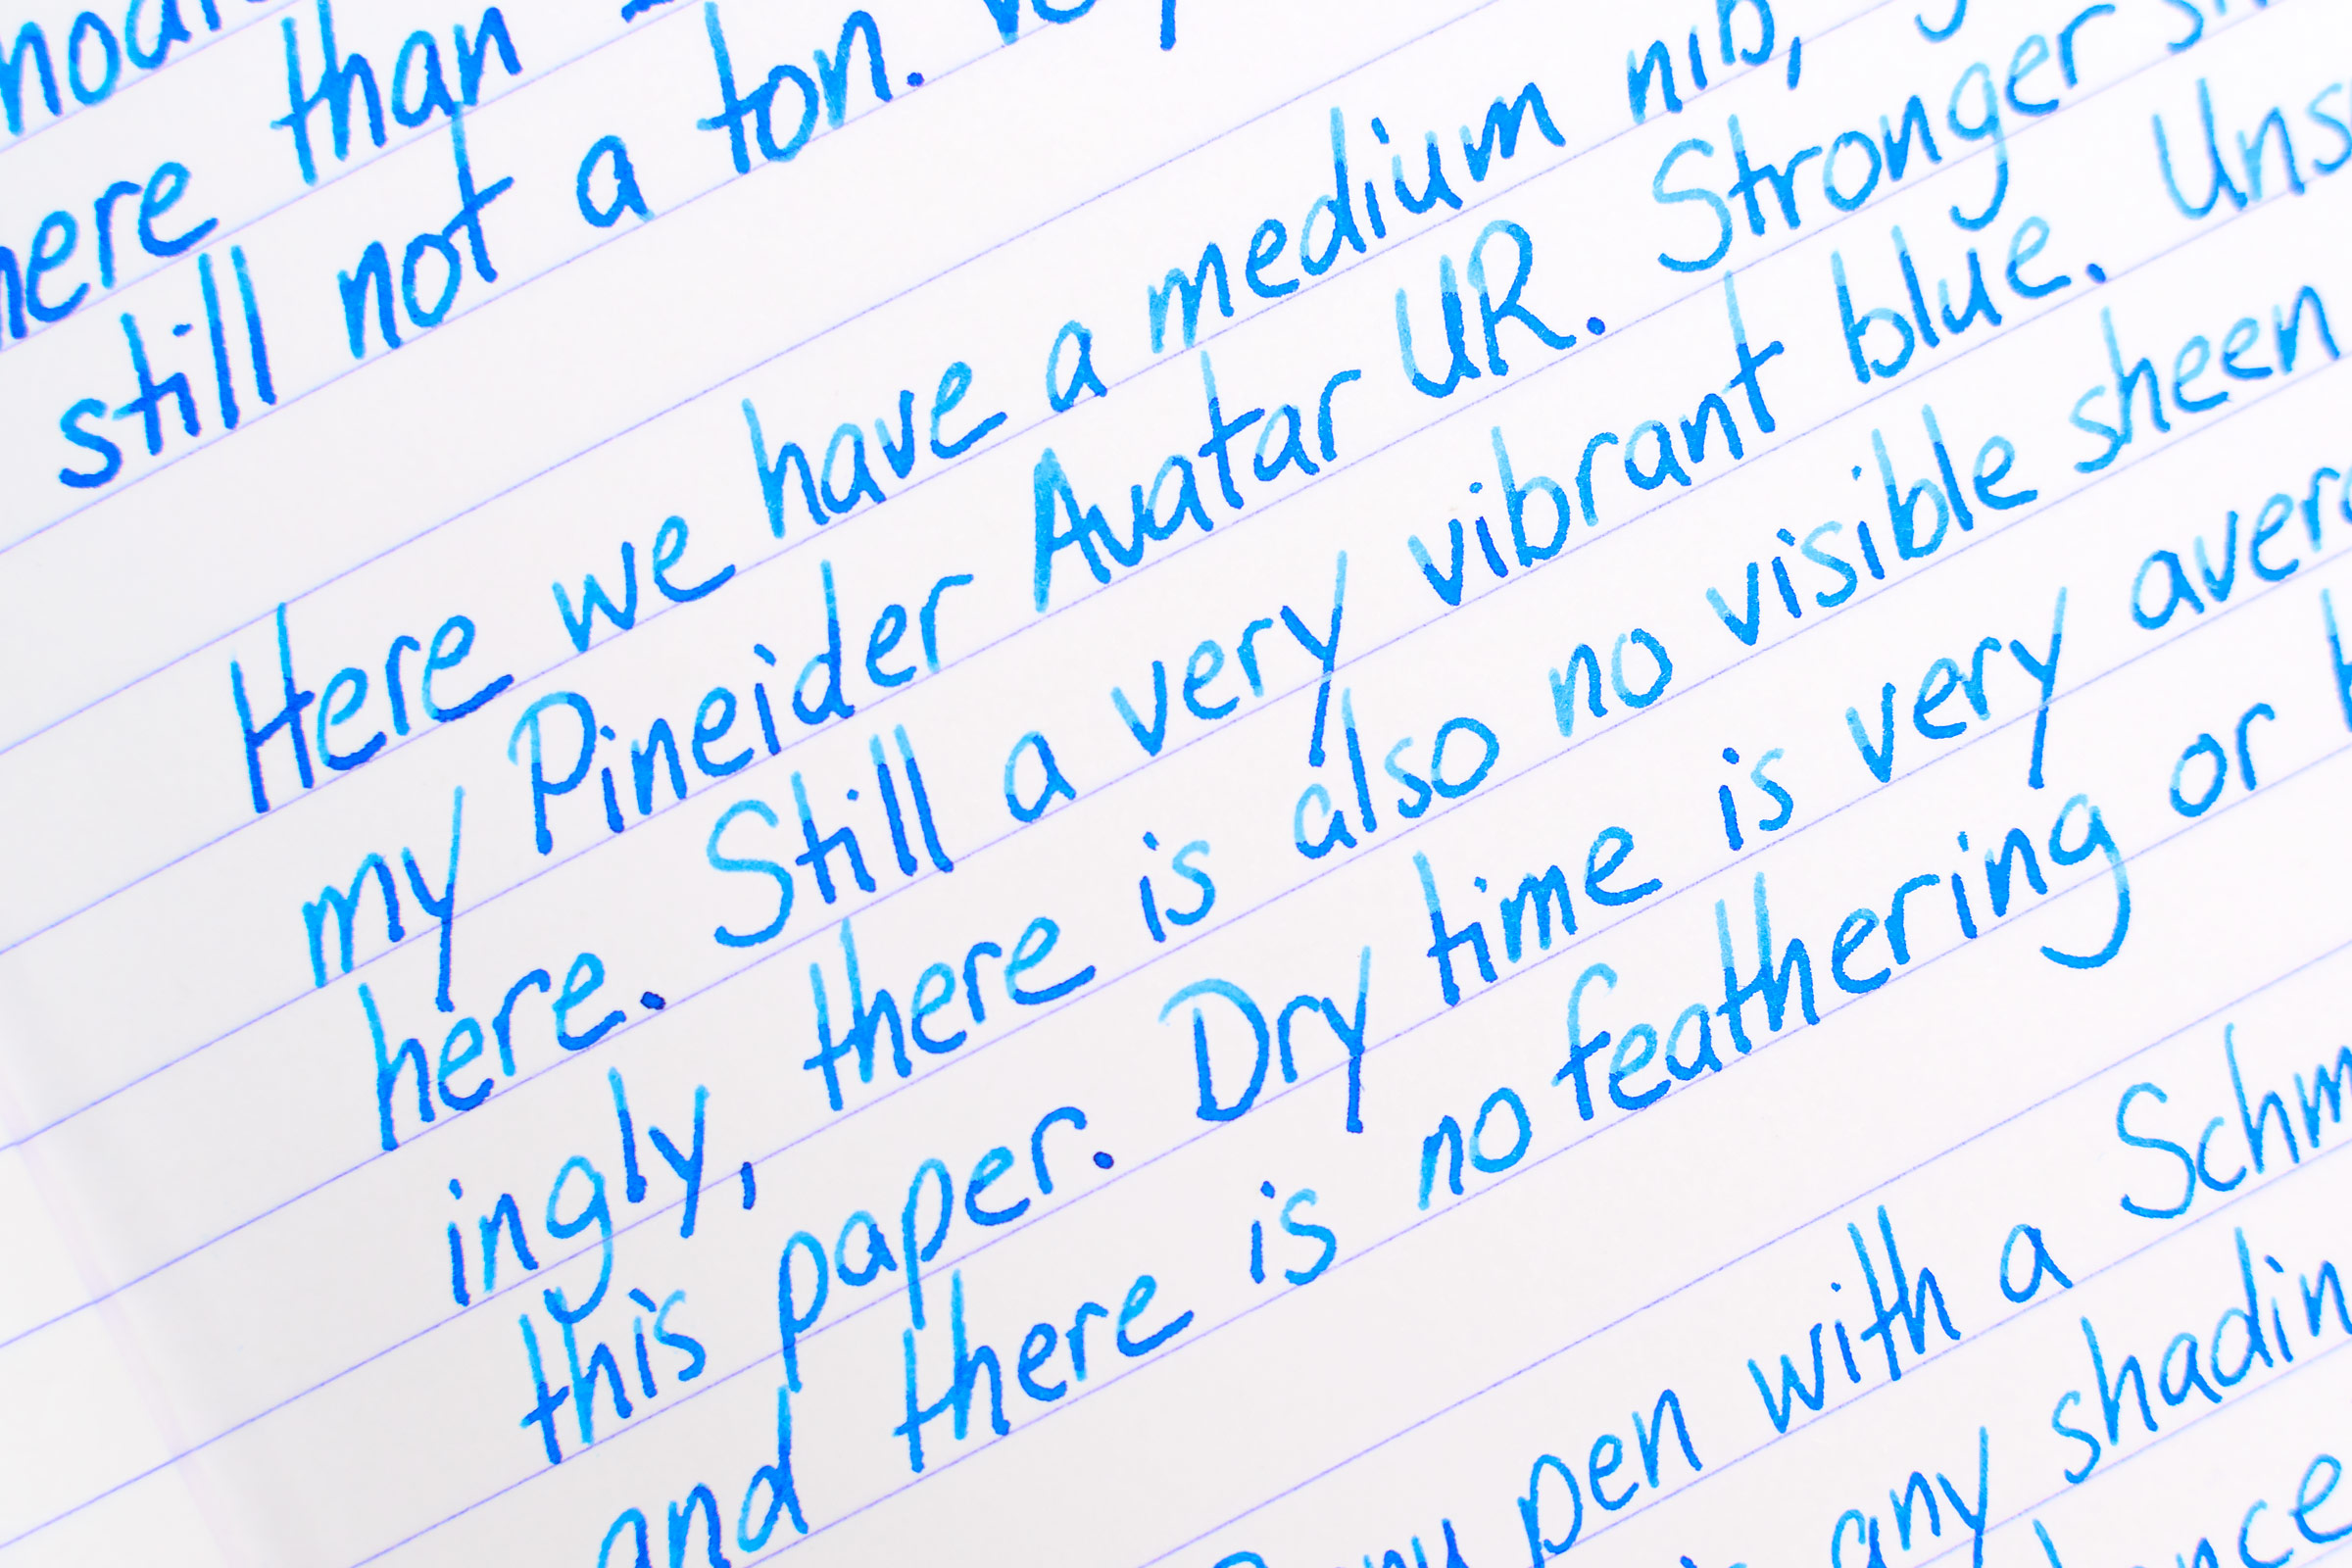 here than
still not a ton.
Here we have a medium nib,
my Pineider Avatar UR. Stronger
here. Still a very vibrant blue. Uns
ingly, there is also no visible sheen
this paper. Dry time is very avera
and there is no feathering or
pen with a Schm
any shadin